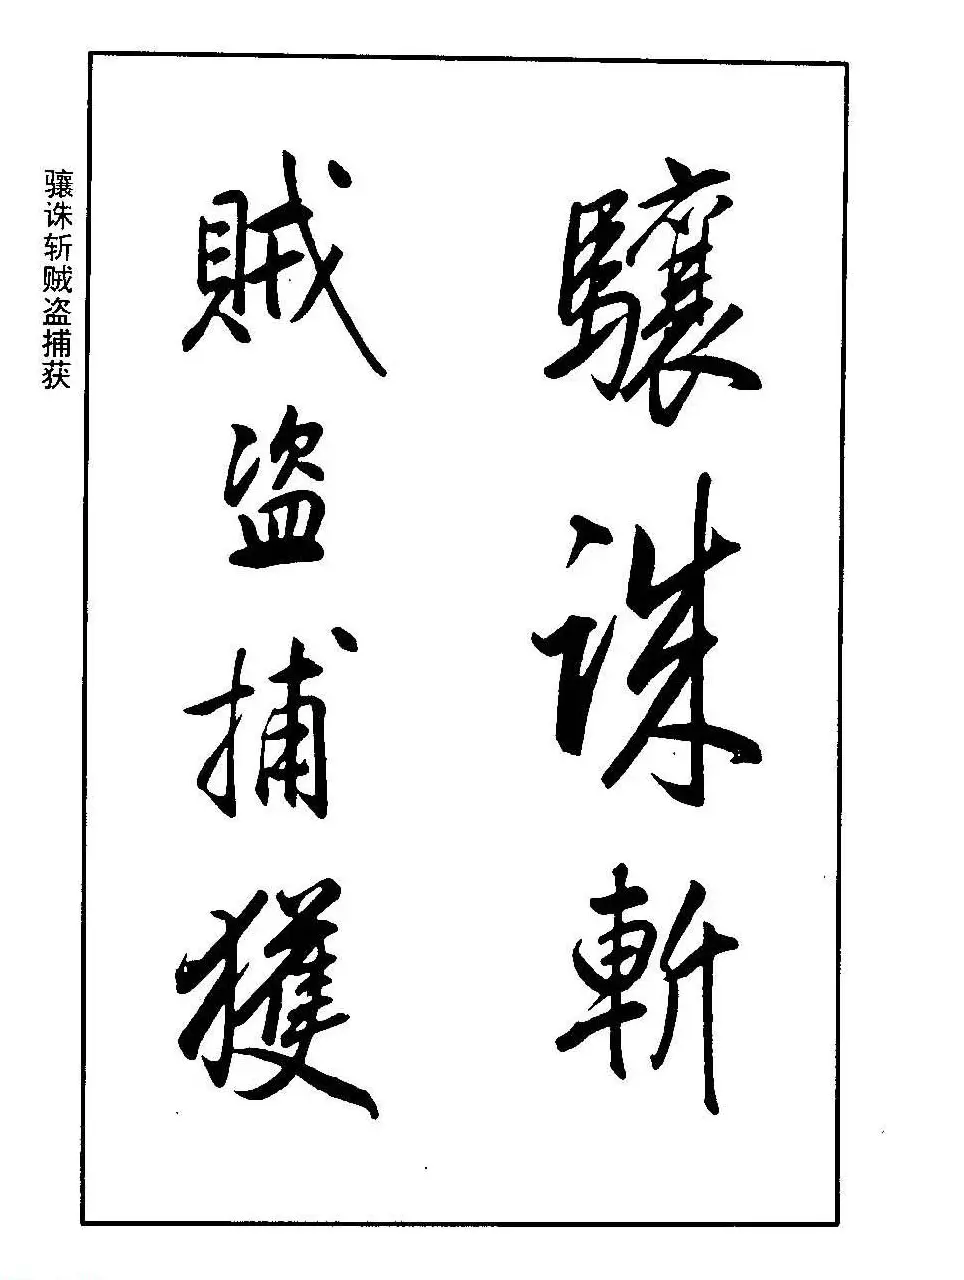 驤誅斬
賊盗捕獲
骧诛斩贼盗捕获